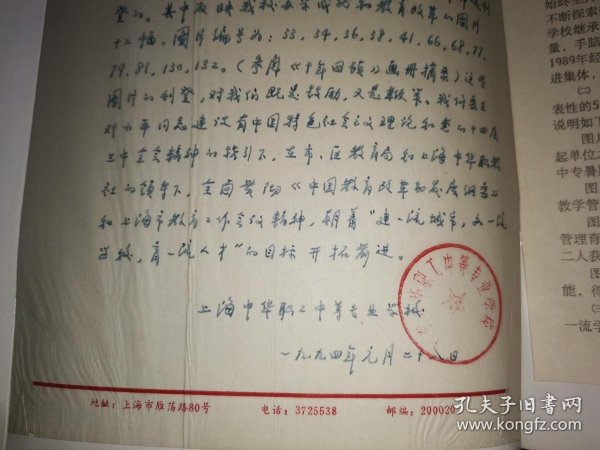 登的。其中反映我校办学成就和教育改革的图片
十二幅。图片编号为：33,34,36,38,41,66,68,77,
79,81,130,132。(参阅《十年回顾》画册摘录)这些
图片的刊登，对我们既是鼓励，又是鞭策。我们要在
邓小平同志建设有中国特色社会主义理论和党的十四届
三中全会精神的指引下，在市、区教育局和上海中华职教
社的领导下，全面贯彻《中国教育改革和发展纲要》
和上海市教育工作会议精神，朝着“建一流城市，办一流
学校，育一流人才”的目标开拓前进。
上海中华职工中等专业学校
一九九四年元月二十八日
职工中等专业学校
地址：上海市雁荡路80号 电话：3725538 邮编：200020
始终坚
不断探索
学校继承
量，手脑
1989年经
进集体，
㈡
表性的5
说明如下
图片
起单位之
中专暑期
图
教学管
图
管理育
二人获
图
能，得
㈢
一流学
孔夫子旧书网
www.kongfz.com